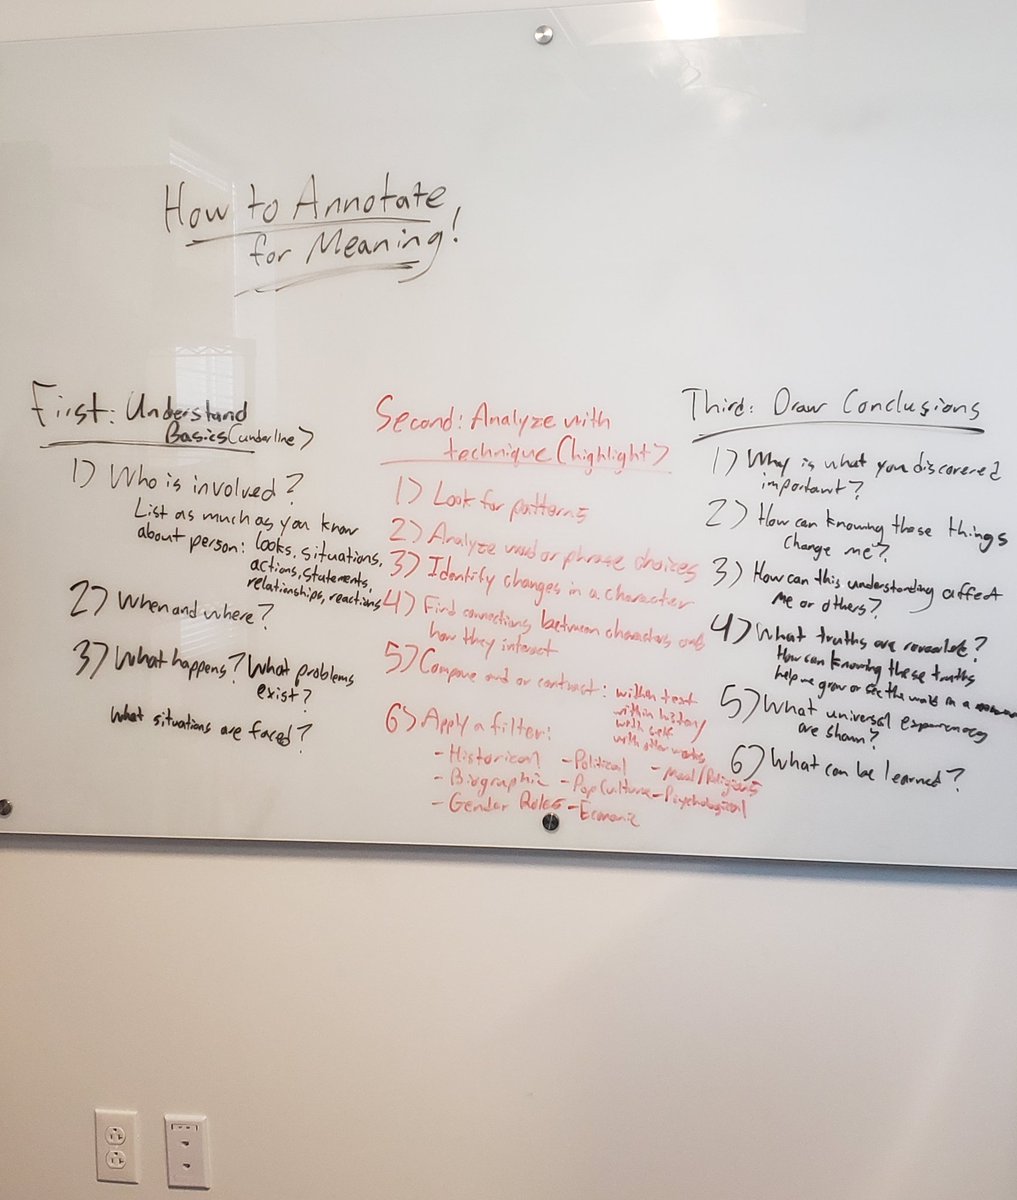 How to Annotate
for Meaning!
First: Understand
Basics (underline)
1) Who is involved?
List as much as you know
about person: looks, situations,
actions, statements,
relationships, reactions
2) When and where?
3) What happens? What problems
exist?
What situations are faced?
Second: Analyze with
technique (highlight)
1) Look for patterns
2) Analyze word or phrase choices
3) Identify changes in a character
4) Find connections between characters and
how they interact
5) Compare and or contrast: within text
within history
with self
with other works
6) Apply a filter:
- Historical - Political - Moral/Religious
- Biographic - Pop Culture - Psychological
- Gender Roles - Economic
Third: Draw Conclusions
1) Why is what you discovered
important?
2) How can knowing these things
change me?
3) How can this understanding affect
me or others?
4) What truths are revealed?
How can knowing these truths
help me grow or see the world in a
5) What universal experiences
are shown?
6) What can be learned?